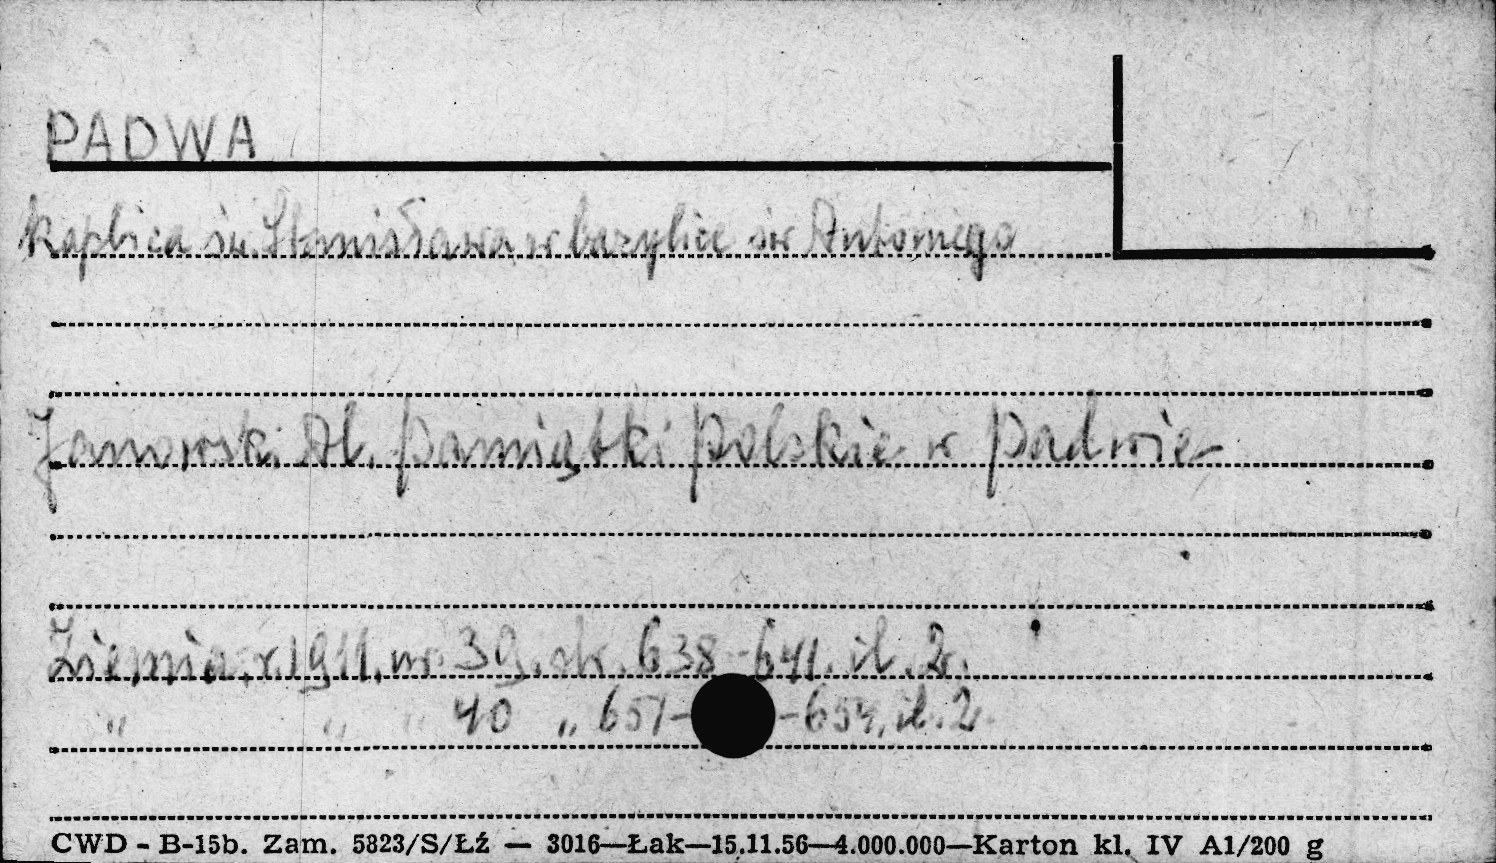 PADWA
kaplica św. Stanisława w bazylice św Antoniego
Janowski Al. Pamiątki polskie w Padwie
Ziemia, r. 1911, nr 39. str. 638-641. il. 2.
" " " 40 „ 651- -654, il. 2
CWD - B-15b. Zam. 5823/S/Łź — 3016—Łak—15.11.56—4.000.000—Karton kl. IV A1/200 g